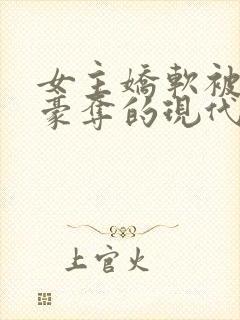 女主嬌軟被
豪奪的現代
上官火